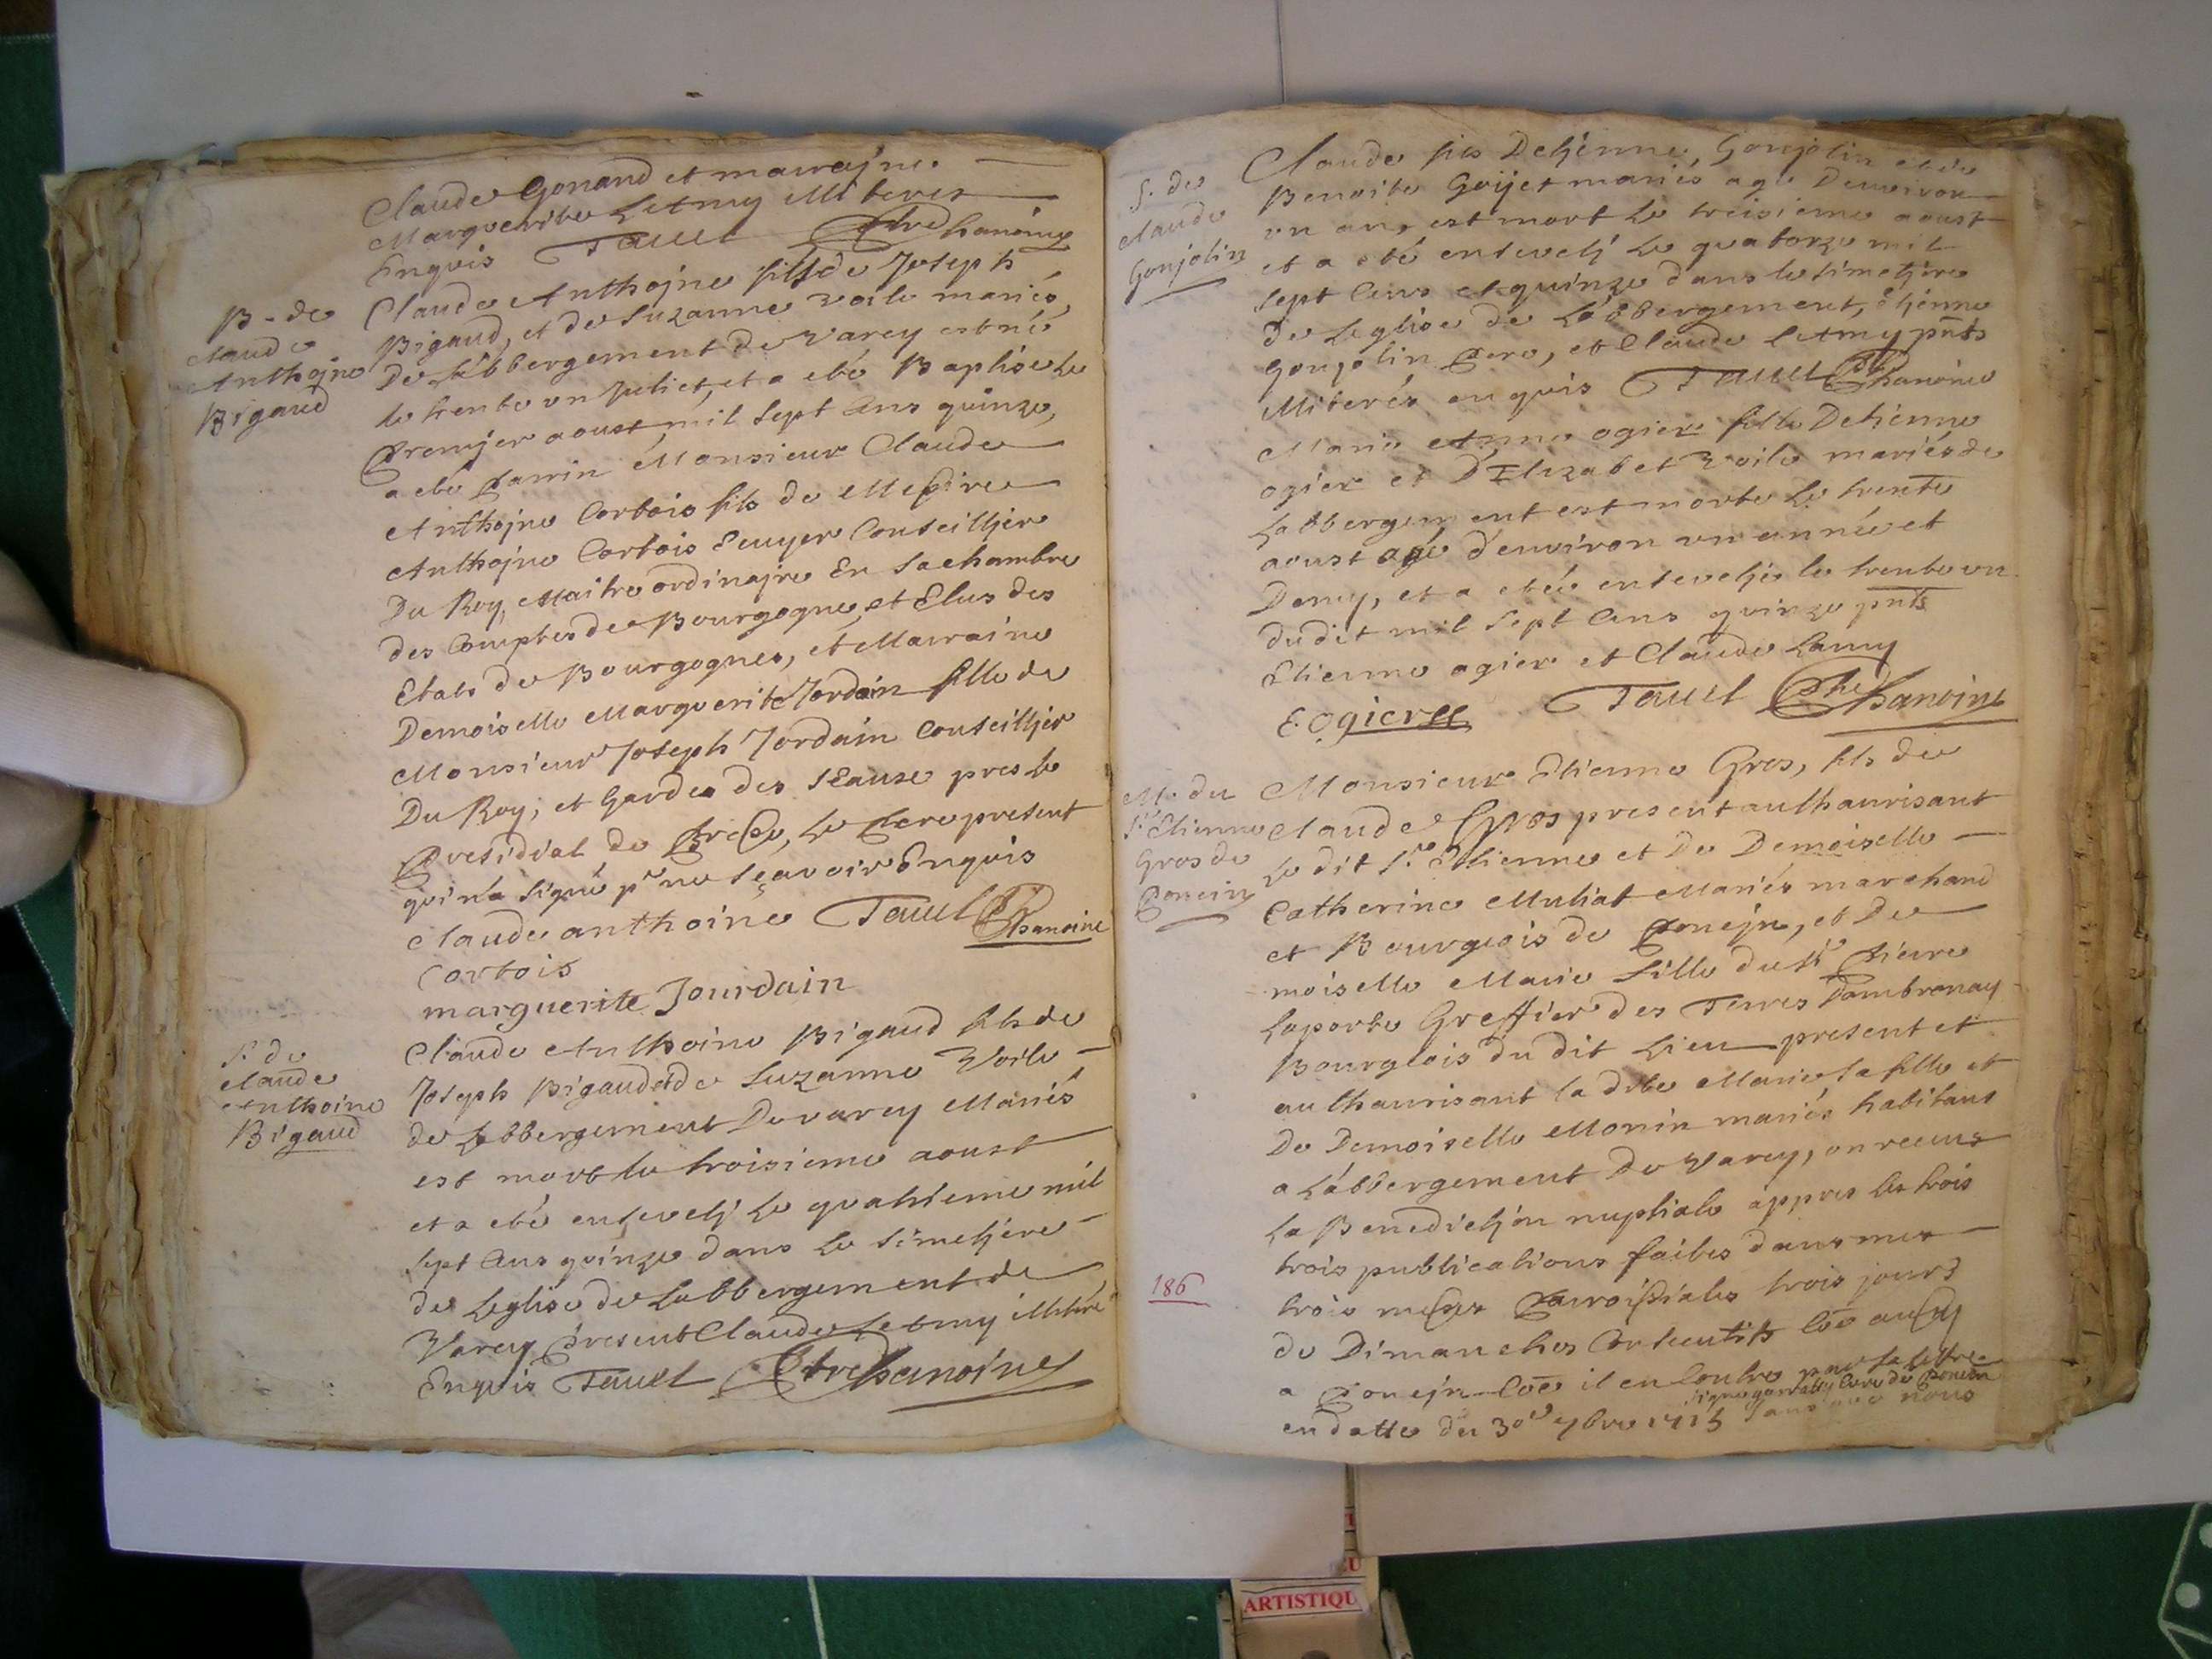 Claude Gonand et marrajne
Marguerite Letmy illiteres
Enquis Tauel ptre Chanoine
B. de
Claude
Anthojne
Bigaud
Claude Anthojne fils de Joseph
Bigaud, et de Suzanne Voile mariés
De Labbergement de Varey est né
le trente un Juliet, et a eté Baptisé Le
premjer aoust mil sept Cens quinze,
a eté parrin Monsieur Claude
Anthojne Cortois fils de Messire
Anthojne Cortois Ecuyer Conseilljer
Du Roy, Maitre ordinajre En sa chambre
des Comptes de Bourgogne, et Elus des
Etats de Bourgognes, et Marraine
Demoiselle Marguerite Jordain fille de
Monsieur Joseph Jordain Conseilljer
Du Roy, et Gardes des sEause pres le
Presidial de Bresse, Le Pere present
qui n'a signé pr ne sçavoir Enquis
Claude anthoine Tauel Chanoine
Cortois
marguerite Jourdain
S. de
Claude
Anthoine
Bigaud
Claude Anthoine Bigaud fils de
Joseph Bigaud et de Suzanne Voile
de Labbergement De varey Mariés
est mort le troisieme aoust
et a eté enseveli Le quatrieme mil
sept Cens quinze dans Le Simetjere
de Leglise de Labbergement de
Varey present Claude Letmy illitéré
Enquis Tauel ptre Chanoine
S. de
Claude
Gonjolin
Claude fils Detjenne, Gonjolin et de
Benoite Goyjet mariés agé Denviron
un an, est mort Le treisieme aoust
et a eté enseveli Le quatorze mil
sept Cens et quinze dans le simetjere
de Leglise de Labbergement, étjenne
Gonjolin pere, et Claude Letmy pnts
illiterés enquis Tauel Chanoine
Marie Anne ogier fille Detienne
ogier et D'Elizabet Voile mariés de
Labbergement est morte Le trente
aoust agé d'environ un année et
Demy, et a etée enseveljes le trente un
dudit mil sept Cens quinze pnts
Etienne ogier et Claude Lamy
E. Ogier Tauel ptre Chanoine
M. du
Sr Etienne
Gros de
Poncin
Monsieur Etienne Gros, fils de
Claude Gros present authaurisant
Le dit Sr Etienne et De Demoiselle
Catherine Muliat Mariés marchand
et Bourgeois de Poncjn, et De
moiselle Marie fille du Sr Pierre
Laporte Greffier des Terres Dambronay
Bourgeois du dit Lieu present et
authaurisant la dite Marie, sa fille et
De Demoiselle Monin mariés habitans
a Labbergement De Varey, on receus
La Benedictjon nuptiale appres les trois
trois publications faites dans mes
186
trois messes Parroissiales trois jours
de Dimanches Consecutifs Côe aussy
a Poncjn Côe il en Conste par la lettre
signe Cure de Poncin
en datte du 30e 7bre 1715 sans que nous